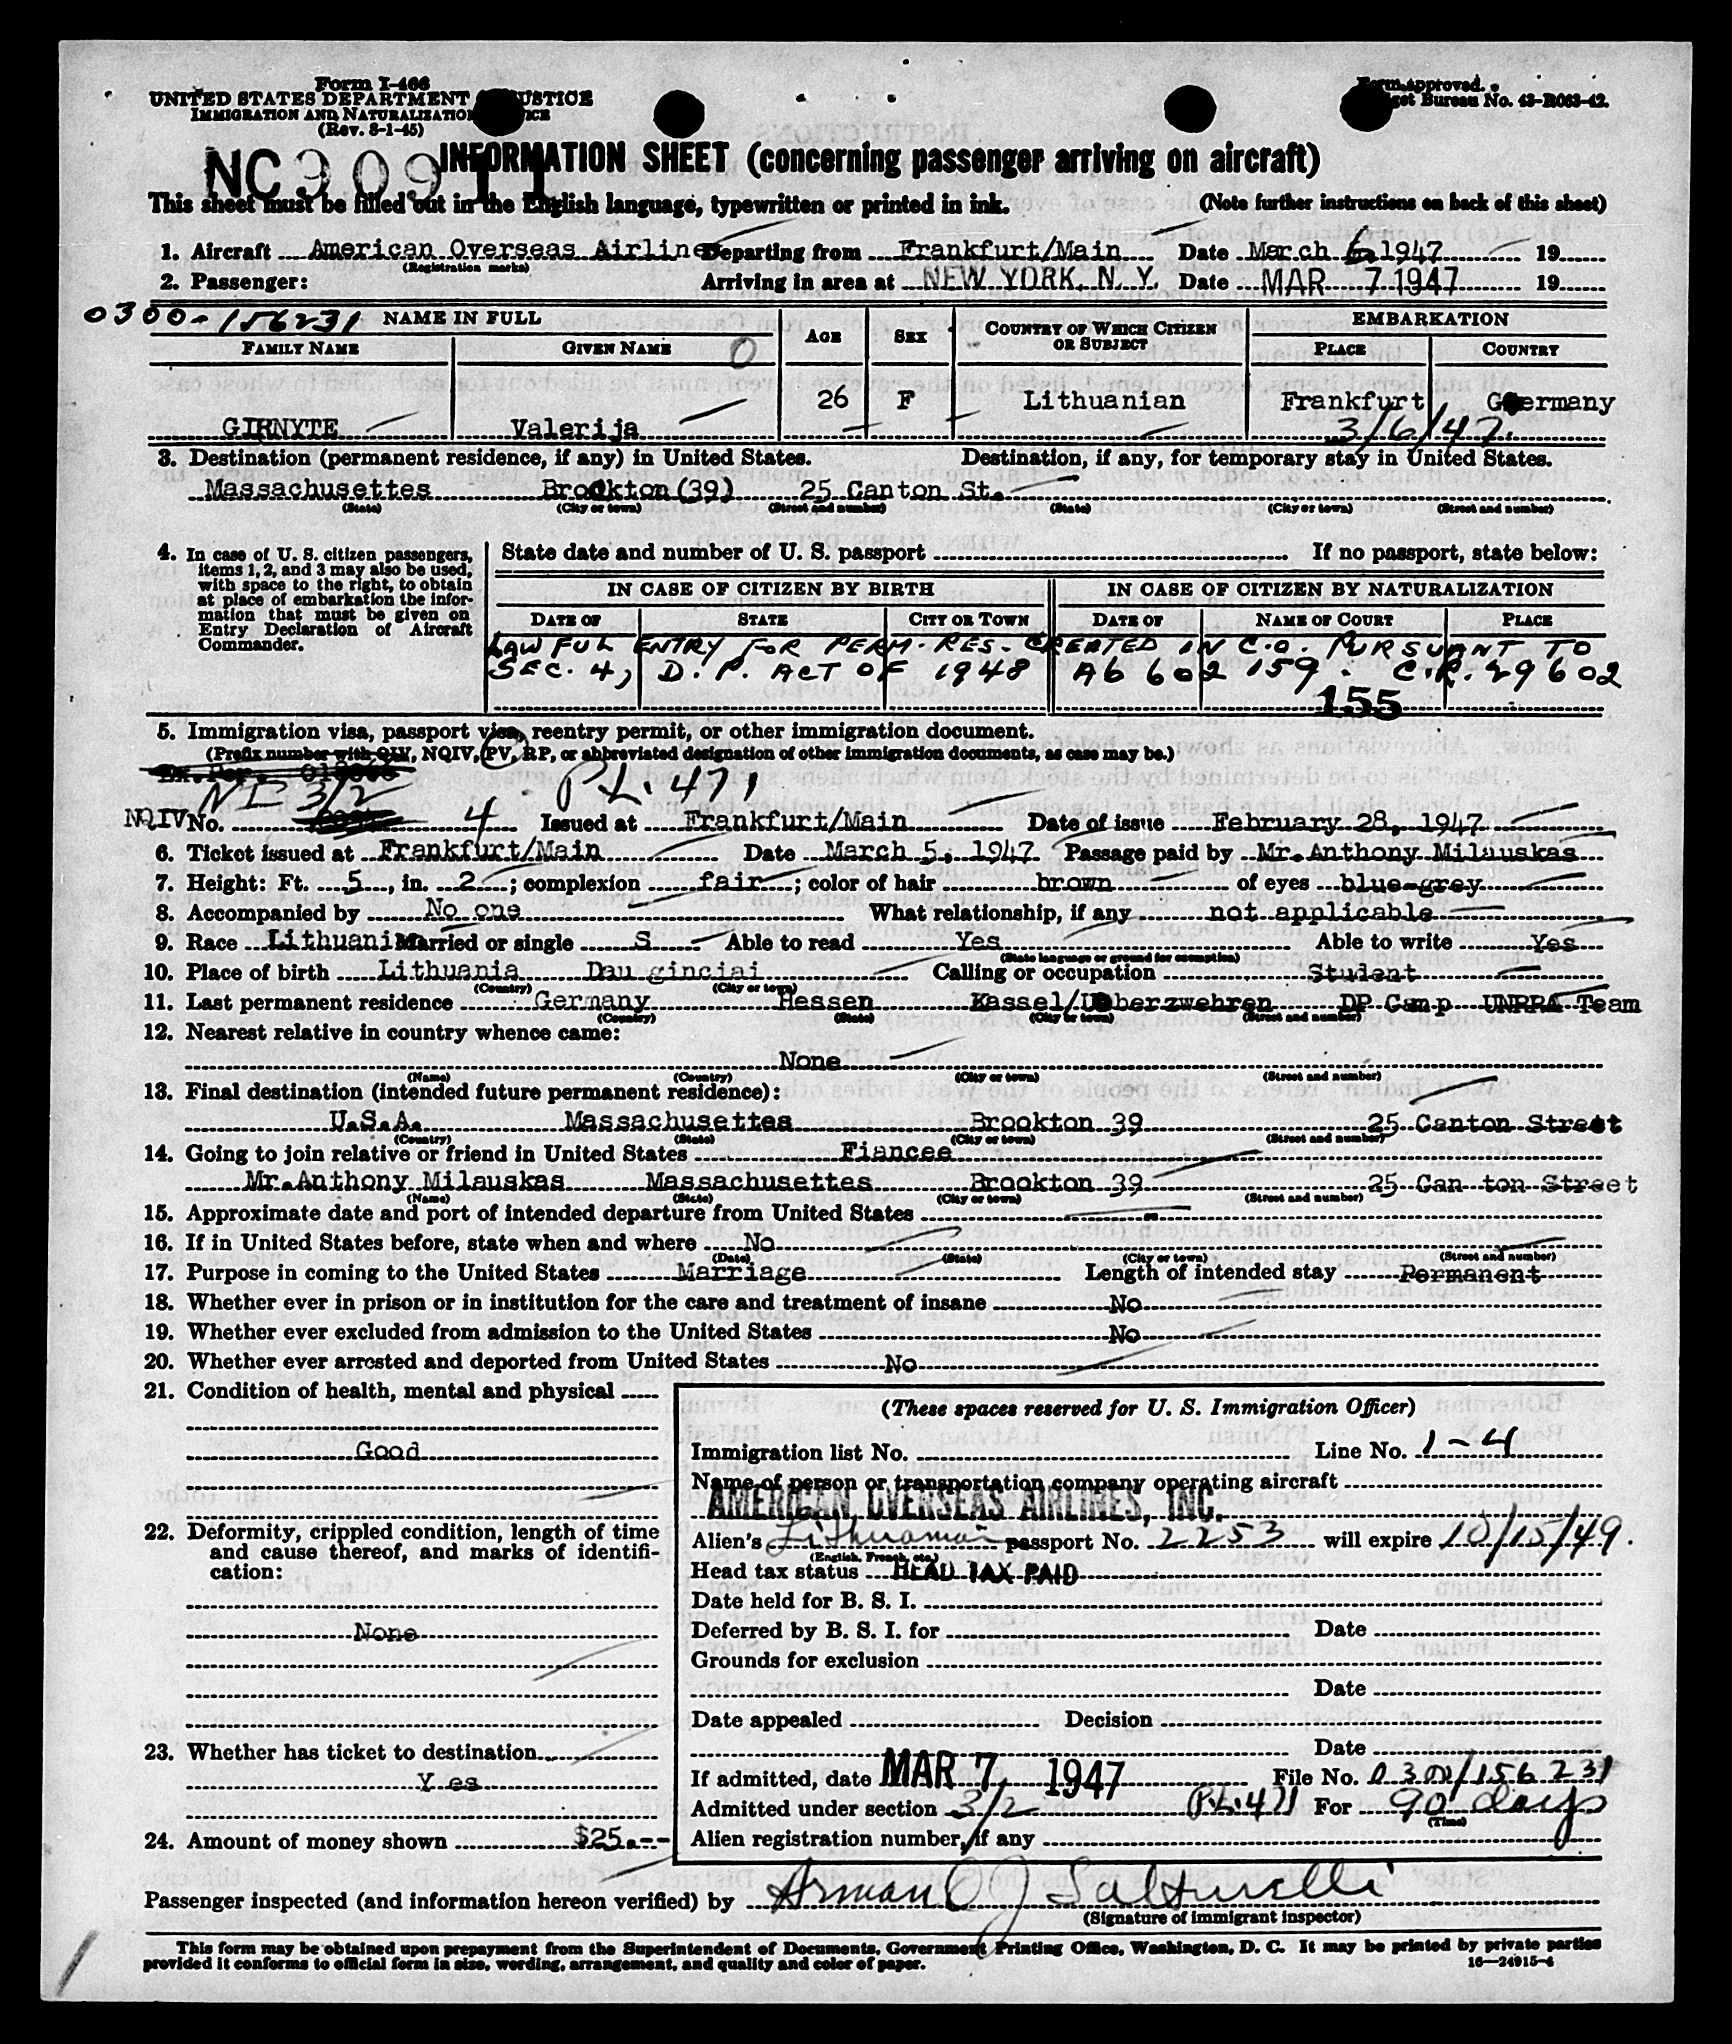 Form I-466
UNITED STATES DEPARTMENT JUSTICE
IMMIGRATION AND NATURALIZATION
(Rev. 8-1-45)
Form approved.
Budget Bureau No. 43-R063-42.
NC 90911
INFORMATION SHEET (concerning passenger arriving on aircraft)
This sheet must be filled out in the English language, typewritten or printed in ink. (Note further instructions on back of this sheet)
1. Aircraft American Overseas Airlines Departing from Frankfurt/Main Date March 6 1947 19
(Registration marks)
2. Passenger: Arriving in area at NEW YORK, N. Y. Date MAR 7 1947 19
0300-156231 NAME IN FULL AGE SEX COUNTRY OF WHICH CITIZEN OR SUBJECT EMBARKATION
FAMILY NAME GIVEN NAME 0 PLACE COUNTRY
26 F Lithuanian Frankfurt Germany
GIRNYTE Valerija 3/6/47.
3. Destination (permanent residence, if any) in United States. Destination, if any, for temporary stay in United States.
Massachusettes Brockton (39) 25 Canton St.
(State) (City or town) (Street and number) (State) (City or town) (Street and number)
4. In case of U. S. citizen passengers, items 1, 2, and 3 may also be used, with space to the right, to obtain at place of embarkation the information that must be given on Entry Declaration of Aircraft Commander.
State date and number of U. S. passport If no passport, state below:
IN CASE OF CITIZEN BY BIRTH IN CASE OF CITIZEN BY NATURALIZATION
DATE OF STATE CITY OR TOWN DATE OF NAME OF COURT PLACE
LAWFUL ENTRY FOR PERM. RES. CREATED IN C.O. PURSUANT TO
SEC. 4, D. P. ACT OF 1948 A6 602 159. C.R. 29602
155
5. Immigration visa, passport visa, reentry permit, or other immigration document.
(Prefix number with QIV, NQIV, PV, RP, or abbreviated designation of other immigration documents, as case may be.)
NI 3/2 P.L. 471
NQIV No. 4 Issued at Frankfurt/Main Date of issue February 28, 1947
6. Ticket issued at Frankfurt/Main Date March 5, 1947 Passage paid by Mr. Anthony Milauskas
7. Height: Ft. 5, in. 2; complexion fair; color of hair brown of eyes blue-grey
8. Accompanied by No one What relationship, if any not applicable
9. Race Lithuanian Married or single S Able to read Yes Able to write Yes
(State language or ground for exemption)
10. Place of birth Lithuania Dau ginciai Calling or occupation Student
(Country) (City or town)
11. Last permanent residence Germany Hessen Kassel/Uberzwehren DP Camp UNRRA Team
(Country) (State) (City or town) (Street and number)
12. Nearest relative in country whence came:
None
(Name) (Country) (City or town) (Street and number)
13. Final destination (intended future permanent residence):
U.S.A. Massachusettes Brockton 39 25 Canton Street
(Country) (State) (City or town) (Street and number)
14. Going to join relative or friend in United States Fiancee
Mr. Anthony Milauskas Massachusettes Brockton 39 25 Can ton Street
(Name) (State) (City or town) (Street and number)
15. Approximate date and port of intended departure from United States -
16. If in United States before, state when and where No
(Date) (State) (City or town) (Street and number)
17. Purpose in coming to the United States Marriage Length of intended stay Permanent
18. Whether ever in prison or in institution for the care and treatment of insane No
19. Whether ever excluded from admission to the United States No
20. Whether ever arrested and deported from United States No
21. Condition of health, mental and physical
Good
22. Deformity, crippled condition, length of time and cause thereof, and marks of identification:
None
23. Whether has ticket to destination
Y es
24. Amount of money shown $25.--
(These spaces reserved for U. S. Immigration Officer)
Immigration list No. Line No. 1-4
Name of person or transportation company operating aircraft
AMERICAN OVERSEAS AIRLINES, INC.
Alien's Lithuanian passport No. 2253 will expire 10/15/49.
(English, French, etc.)
Head tax status HEAD TAX PAID
Date held for B. S. I.
Deferred by B. S. I. for Date
Grounds for exclusion
Date
Date appealed Decision
Date
If admitted, date MAR 7 1947 File No. 0300/156231
Admitted under section 3/2 P.L. 471 For 90 days
(Time)
Alien registration number, if any
Passenger inspected (and information hereon verified) by Arman J Salturelli
(Signature of immigrant inspector)
This form may be obtained upon prepayment from the Superintendent of Documents, Government Printing Office, Washington, D. C. It may be printed by private parties
provided it conforms to official form in size, wording, arrangement, and quality and color of paper. 16-24915-4